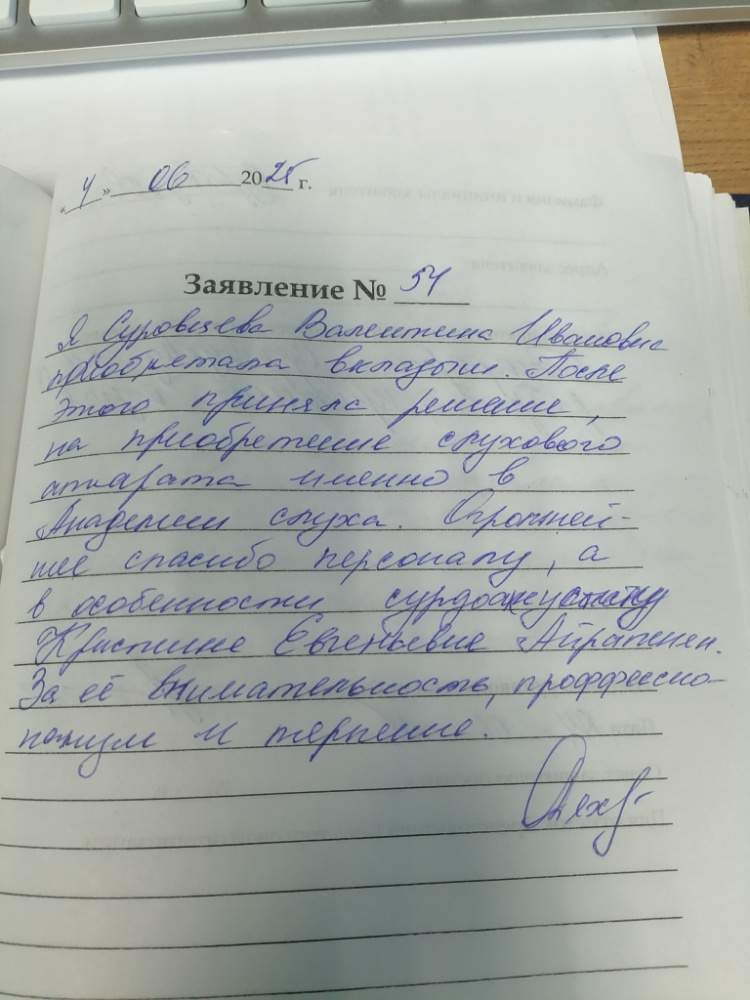 « 4 » 06 2025 г.
Заявление № 54
Я Суровцева Валентина Ивановна
приобретала вкладыш. После
этого приняла решение,
на приобретение слухового
аппарата именно в
Академии слуха. Огромней-
шее спасибо персоналу, а
в особенности сурдоакустику
Кристине Евгеньевне Айрапетян.
За её внимательность, проффессио-
нализм и терпение.